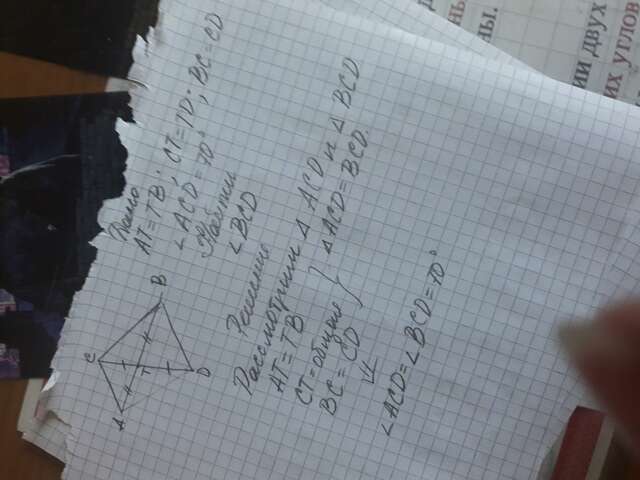 Дано
AT=TB; CT=TD; BC=CD
∠ACD=70°
Найти
∠BCD
Решение
Рассмотрим △ ACD и △ BCD
AT=TB
CT=общие } △ACD=BCD.
BC=CD
∠ACD=∠BCD=70°
A
C
B
D
T
ии двух
их углов
ны.